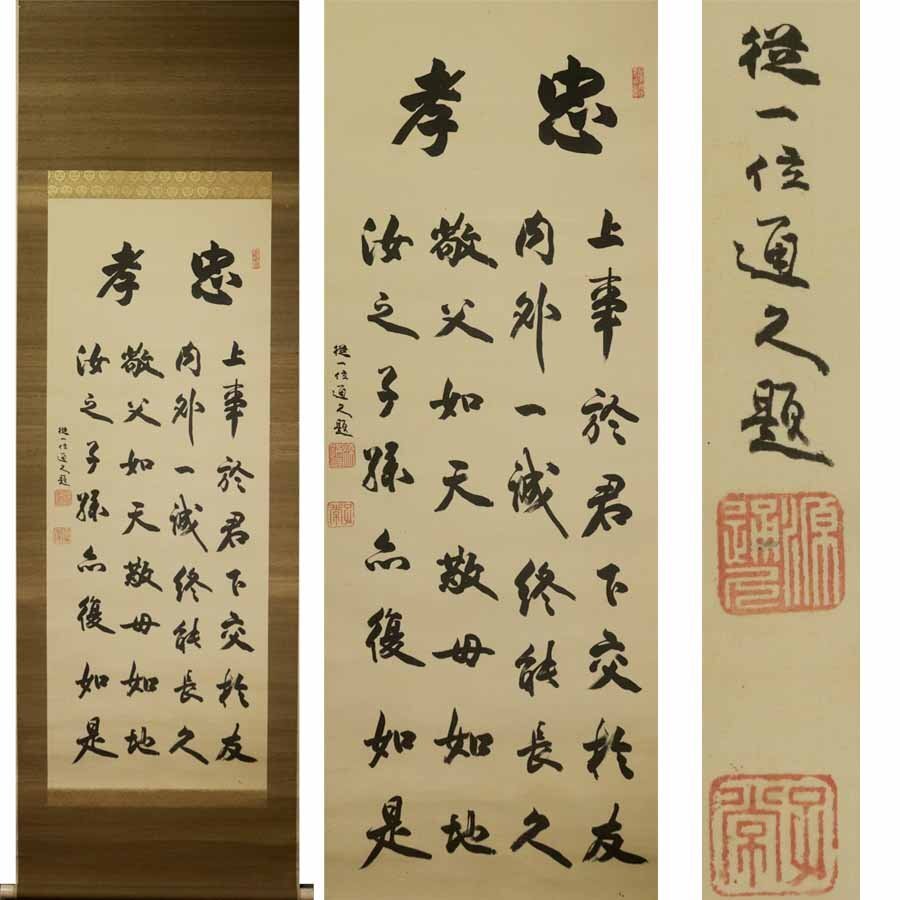 忠孝
上事於君下交於友
内外一誠終能長久
敬父如天敬母如地
汝之子孫亦復如是
從一位通久題
忠孝
上事於君下交於友
内外一誠終能長久
敬父如天敬母如地
汝之子孫亦復如是
從一位通久題
從一位通久題
源通久
子常